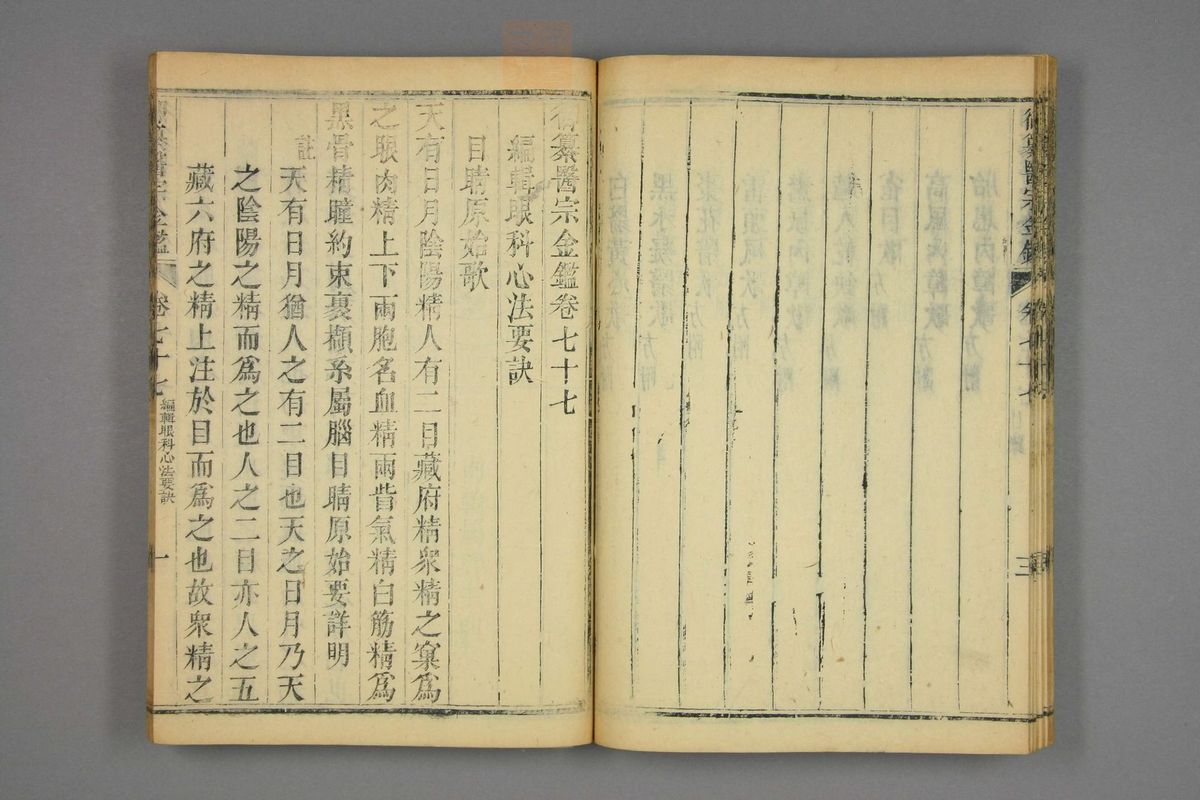 御纂醫宗金鑑 卷七十七 三
御纂醫宗金鑑卷七十七
編輯眼科心法要訣
目睛原始歌
天有日月陰陽精人有二目藏府精眾精之窠爲
之眼肉精上下兩胞名血精兩眥氣精白筋精爲
黑骨精瞳約束裹擷系屬腦目睛原始要詳明
註
天有日月猶人之有二目也天之日月乃天
之陰陽之精而爲之也人之二目亦人之五
藏六府之精上注於目而爲之也故眾精之
御纂醫宗金鑑 卷七十七 編輯眼科心法要訣 一